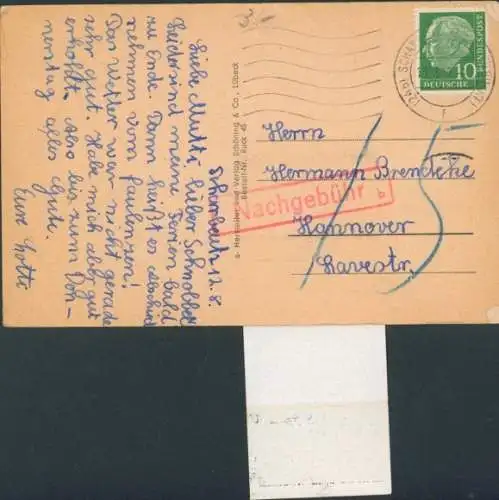 12.8.
Liebe Mutti, lieber Schnobbel
Leider sind meine Ferien bald
zu Ende. Dann heißt es Abschied
nehmen vom faulenzen!
Das Wetter war nicht gerade
sehr gut. Habe mich aber gut
erholt. Also bis zum Don-
nerstag alles Gute.
Eure Lotte
Verlag Schöning & Co., Lübeck
Bestell-Nr.
10
DEUTSCHE
BUNDESPOST
Herrn
Hermann Brendeke
Nachgebühr
Hannover
Lavestr.
15